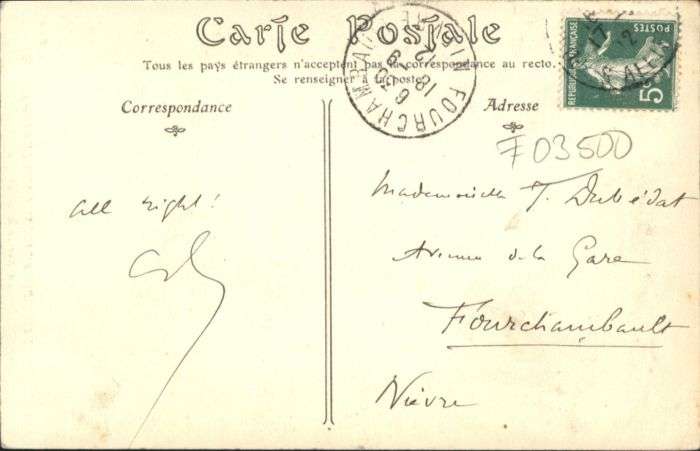 Carte Postale
Tous les pays étrangers n'acceptent pas la correspondance au recto.
Se renseigner à la poste.
Correspondance
Adresse
REPUBLIQUE FRANÇAISE
POSTES
5
FOURCHAMBAULT
F 03500
all right!
Mademoiselle T. Dubédat
Avenue de la Gare
Fourchambault
Nièvre